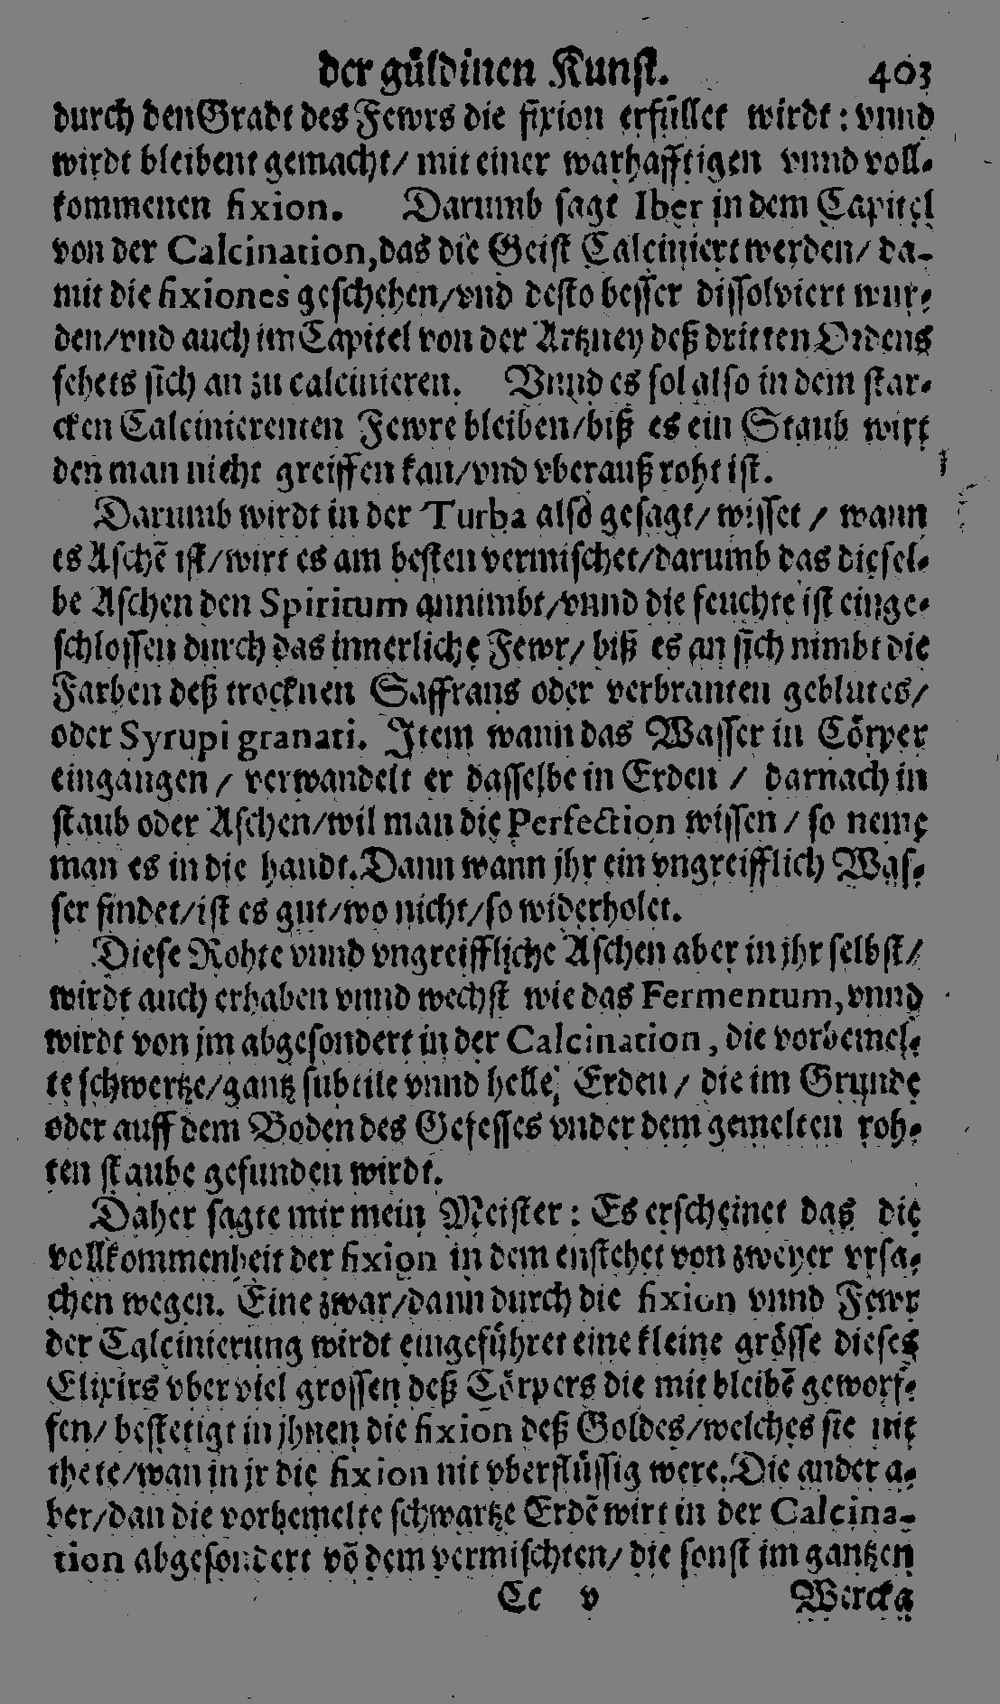 der güldinen Kunst. 403
durch den Gradt des Fewrs die fixion erfüllet wirdt: vnnd
wirdt bleibent gemacht/ mit einer warhafftigen vnnd voll-
kommenen fixion. Darumb sagt Iber in dem Capitel
von der Calcination, das die Geist Calciniert werden/ da-
mit die fixiones geschehen/vnd desto besser dissolviert wur-
den/vnd auch im Capitel von der Artzney deß dritten Ordens
sehets sich an zu calcinieren. Vnnd es sol also in dem star-
cken Calcinierenten Fewre bleiben/biß es ein Staub wirt
den man nicht greiffen kan/vnd vberauß roht ist.
Darumb wirdt in der Turba also gesagt/ wisset / wann
es Aschē ist/wirt es am besten vermischet/darumb das diesel-
be Aschen den Spiritum annimbt/vnnd die feuchte ist einge-
schlossen durch das innerliche Fewr/ biß es an sich nimbt die
Farben deß trocknen Saffrans oder verbranten geblutes/
oder Syrupi granati. Item wann das Wasser in Cörper
eingangen / verwandelt er dasselbe in Erden / darnach in
staub oder Aschen/wil man die Perfection wissen / so neme
man es in die handt. Dann wann jhr ein vngreifflich Was-
ser findet/ist es gut/wo nicht/so widerholet.
Diese Rohte vnnd vngreiffliche Aschen aber in jhr selbst/
wirdt auch erhaben vnnd wechst wie das Fermentum, vnnd
wirdt von jm abgesondert in der Calcination, die vorbemel-
te schwertze/gantz subtile vnnd helle Erden / die im Grunde
oder auff dem Boden des Gefesses vnder dem gemelten roh-
ten staube gefunden wirdt.
Daher sagte mir mein Meister: Es erscheinet das die
vollkommenheit der fixion in dem enstehet von zweyer vrsa-
chen wegen. Eine zwar/dann durch die fixion vnnd Fewr
der Calcinierung wirdt eingeführet eine kleine grösse dieses
Elixirs vber viel grossen deß Cörpers die mit bleibē geworf-
fen/ bestetigt in jhnen die fixion deß Goldes/welches sie nit
thete/wan in jr die fixion nit vberflüssig were. Die ander a-
ber/dan die vorbemelte schwartze Erdē wirt in der Calcina-
tion abgesondert vō dem vermischten/ die sonst im gantzen
Cc v Wercka